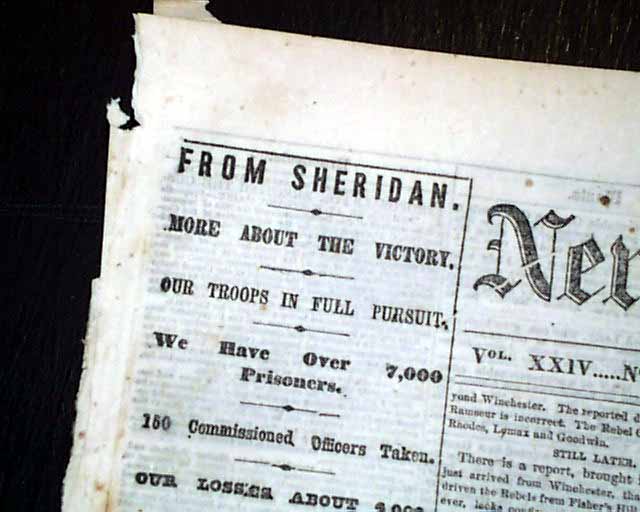 FROM SHERIDAN.
MORE ABOUT THE VICTORY.
OUR TROOPS IN FULL PURSUIT.
We Have Over 7,000
Prisoners.
150 Commissioned Officers Taken.
OUR LOSSES ABOUT
New
VOL. XXIV.....N
yond Winchester. The reported d
Ramseur is incorrect. The Rebel
Rhodes, Lomax and Goodwin.
STILL LATER.
There is a report, brought
just arrived from Winchester, tha
driven the Rebels from Fisher's Hil
ever, lacks